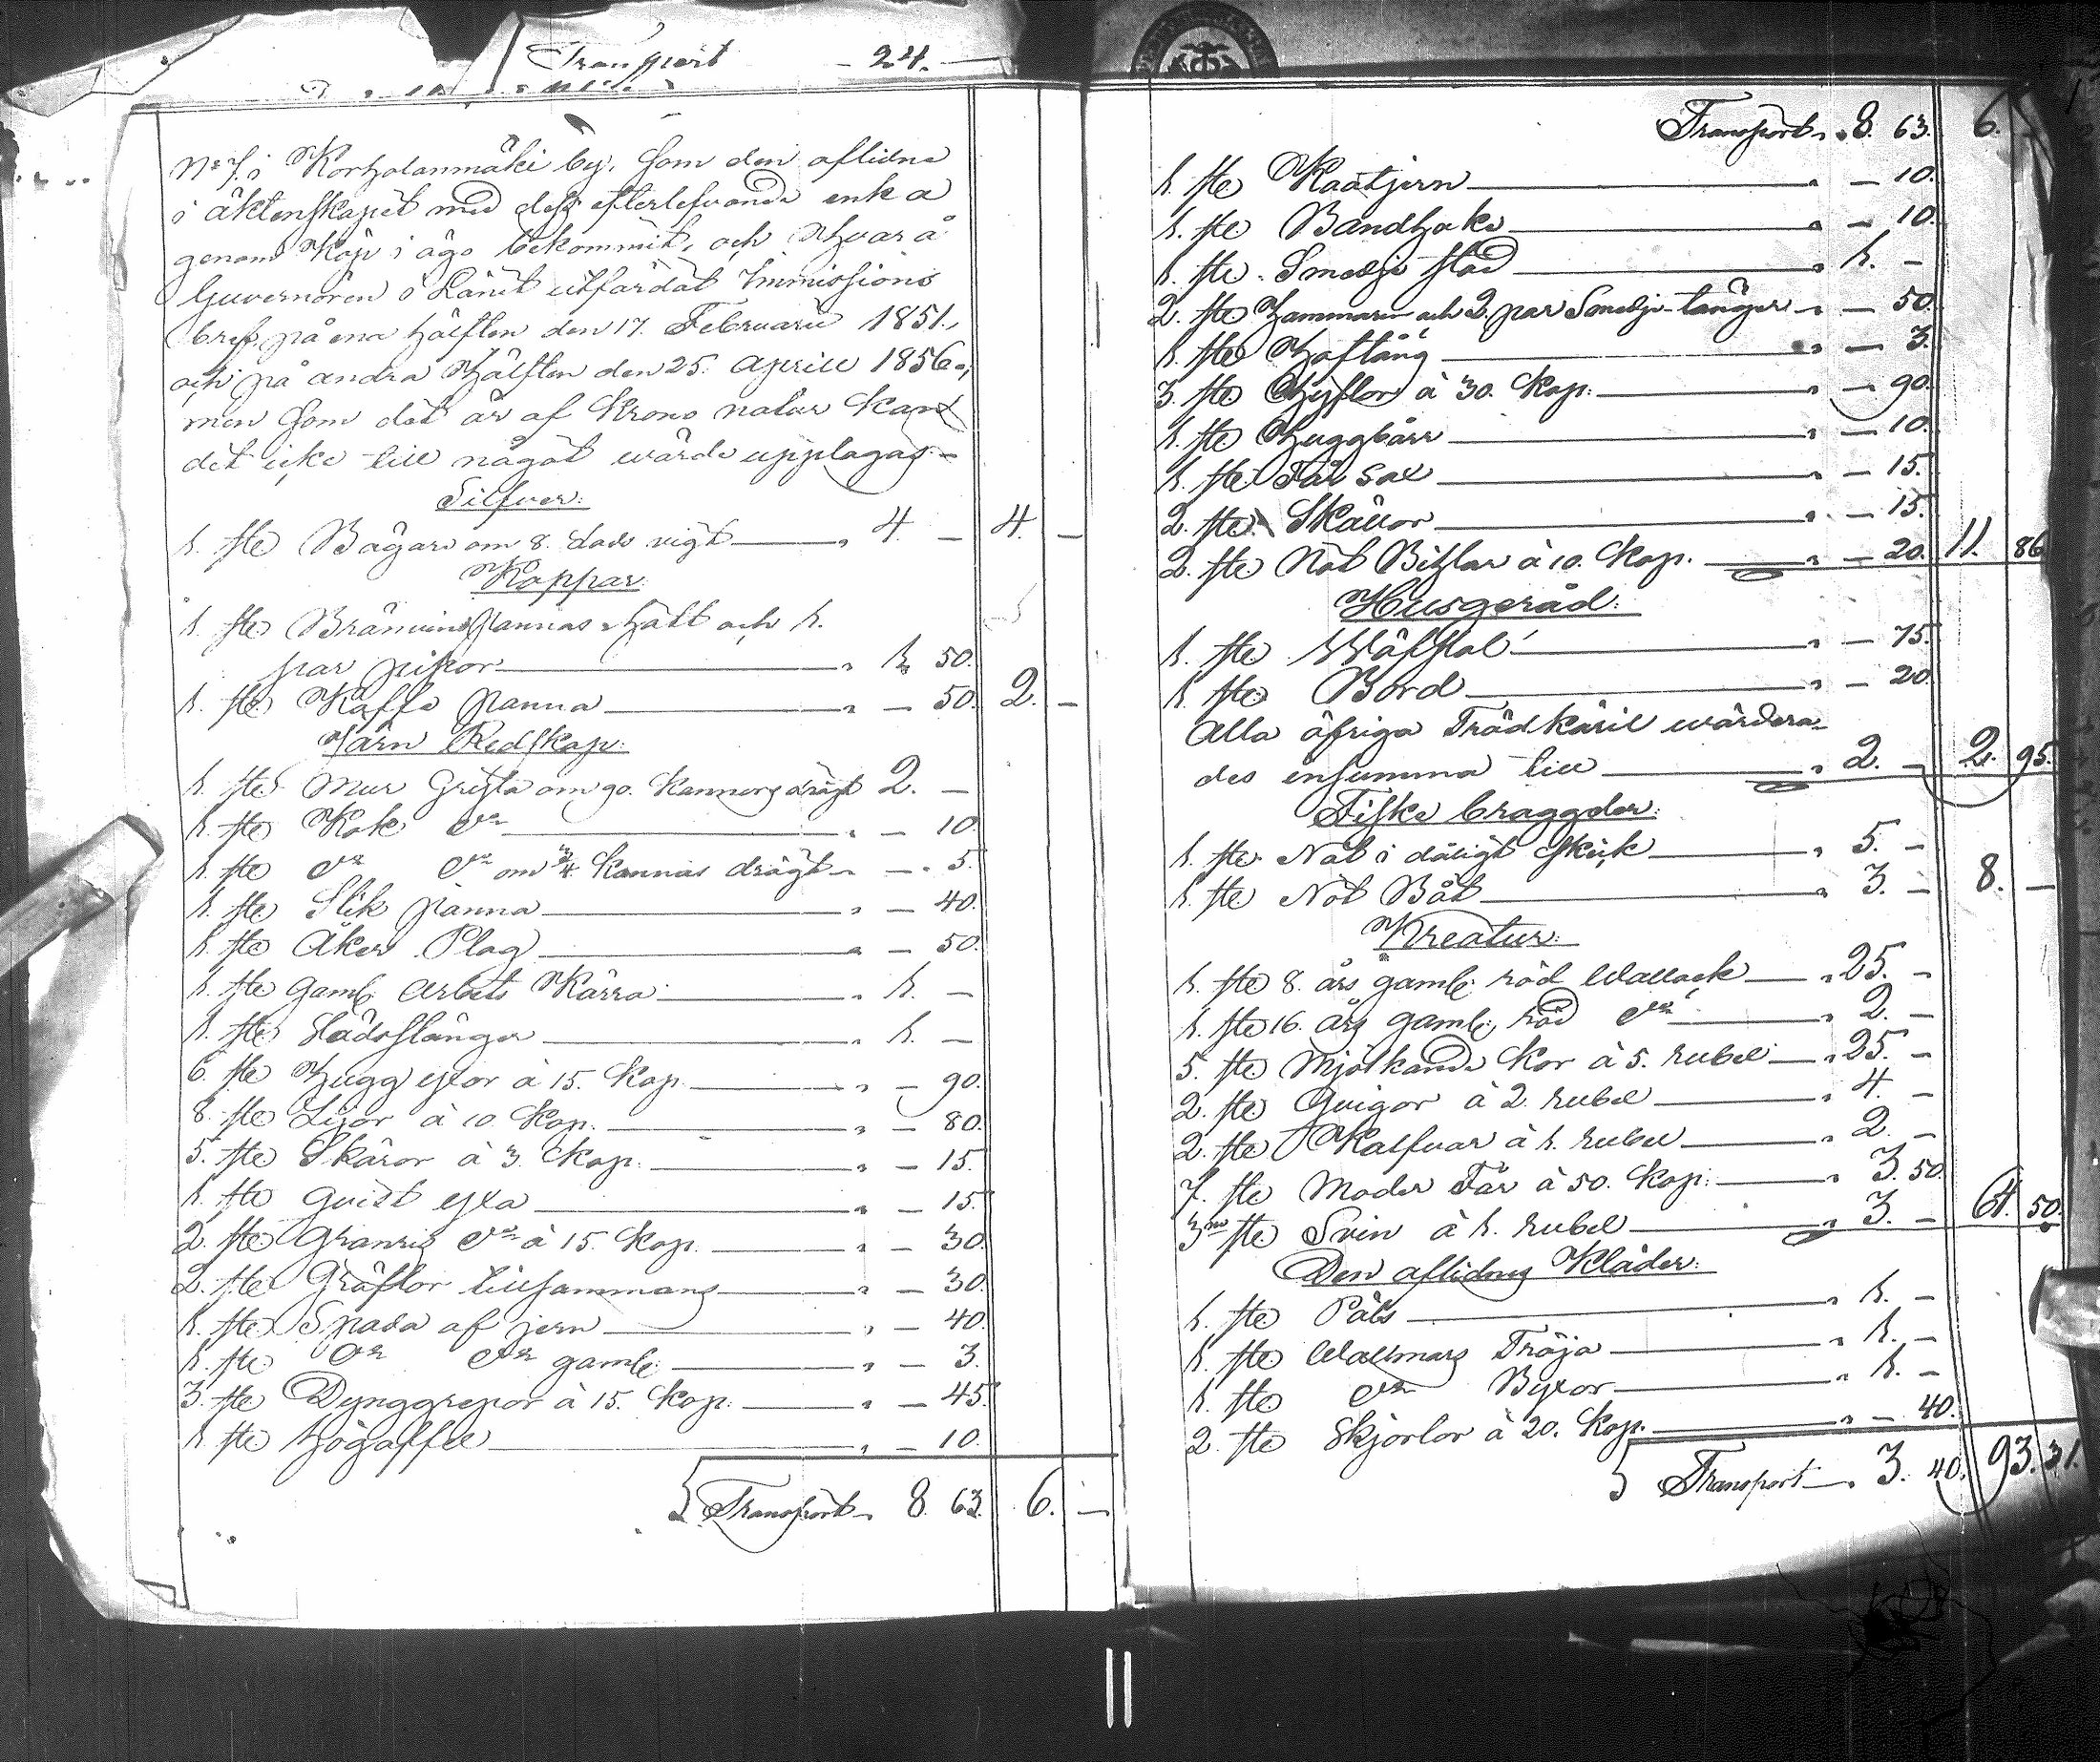 Transport - 24. -
No 7. i Korholanmäki by, som den aflidne
i äktenskapet med dess efterlefvande enka
genom Köp i ägo bekommit, och hvarå
Guvernören i Länet utfärdat Immissions
bref på ena hälften den 17. Februarii 1851.,
och på andra hälften den 25. Aprill 1856.,
men som det är af Krono natur kan
det icke till något wärde upptagas.-
Silfver:
1. ste Bägare om 8. Lods vigt — " 4. — 4. —
Koppar:
1. ste Bränvins Pannas hatt och 1.
par pipor — " 1. 50.
1. ste Kaffe panna — " — 50. 2. —
Järn Redskap:
1. ste Mur Gryta om 90. Kannors drägt 2. —
1. ste Kok do — " — 10.
1. ste do do om 3/4 Kannas drägt " — 5.
1. ste Stek panna — " — 40.
1. ste Åker Plog — " — 50.
1. ste gaml. Arbets Kärra — " 1. —
1. ste Slädstänger — " 1. —
6. ste Hugg yxor à 15. Kop. — " — 90.
8. ste Lijor à 10 Kop. — " — 80.
5. ste Skäror à 3. Kop. — " — 15.
1. ste Quist yxa — " — 15.
2. ste Granris do à 15. Kop. — " — 30.
2. ste Gräftor tillsammans — " — 30.
1. ste Spada af jern — " — 40.
1. ste do do gaml. — " — 3.
3. ste Dynggrepor à 15. Kop. — " — 45.
1. ste Högaffel — " — 10.
Transport " 8. 63. 6. —
Transport " 8. 63. 6. —
1. ste — " — 10.
1. ste Bandhake — " — 10.
1. ste Smedje städ — " 1. —
2. ste Hammare och 2. par Smedje-tänger " — 50.
1. ste Hoftång — " — 3.
3. ste Hyflor à 30. Kop. — " — 90.
1. ste Huggbårr — " — 10.
1. ste Får sax — " — 15.
2. ste Skällor — " — 15.
2. ste Nöt Bitzlar à 10. Kop. — " — 20. 11. 86.
Husgeråd:
1. ste Wäfstol — " — 75.
1. ste Bord — " — 20.
Alla öfriga Trädkäril wärdera-
des ensumma till — " 2. — 2. 95.
Fiske braggder:
1. ste Not i dåligt skick — " 5. —
1. ste Not Båt — " 3. — 8. —
Kreatur:
1. ste 8. års gaml. röd Wallack — " 25. —
1. ste 16. års gaml. röd do — " 2. —
5. ste Mjölkande Kor à 5. rubel — " 25. —
2. ste Qvigor à 2. rubel — " 4. —
2. ste Kalfvar à 1. rubel — " 2. —
7. ste Moder Får à 50. Kop. — " 3. 50.
3. ste Svin à 1. rubel — " 3. — 64. 50.
Den aflidnes Kläder:
1. ste Päls — " 1. —
1. ste Wallmars Tröja — " 1. —
1. ste do Byxor — " 1. —
2. ste Skjortor à 20. Kop. — " — 40.
Transport " 3. 40. 93. 31.